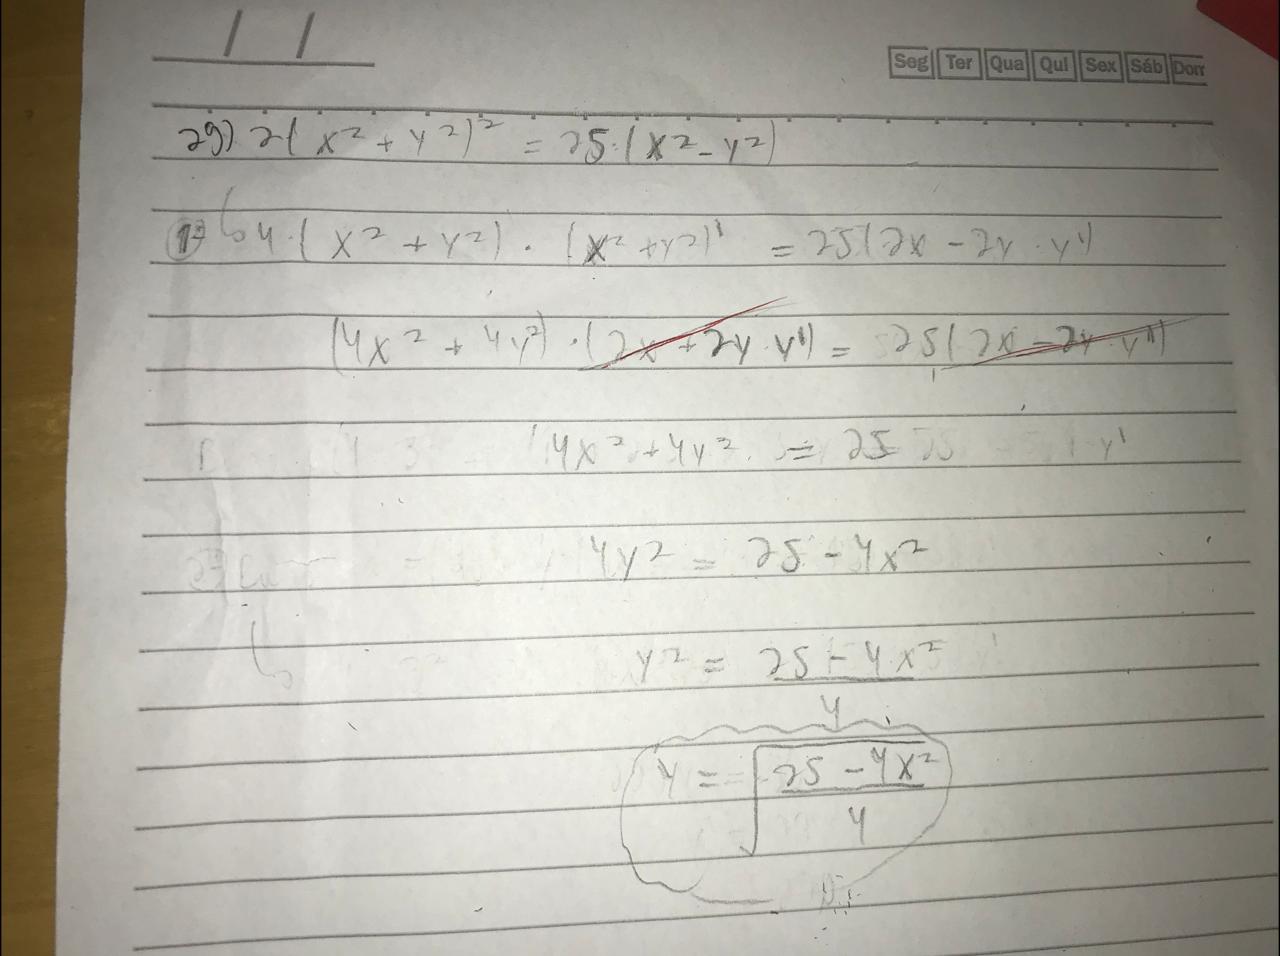 / /
Seg Ter Qua Qui Sex Sáb Dom
29) 2(x² + y²)² = 25.(x² - y²)
1ª 4.(x² + y²) . (x² + y²)' = 25(2x - 2y . y')
(4x² + 4y²) . (2x + 2y . y') = 25(2x - 2y . y')
4x² + 4y² = 25
4y² = 25 - 4x²
y² = 25 - 4x²
4
y = √25 - 4x²
4